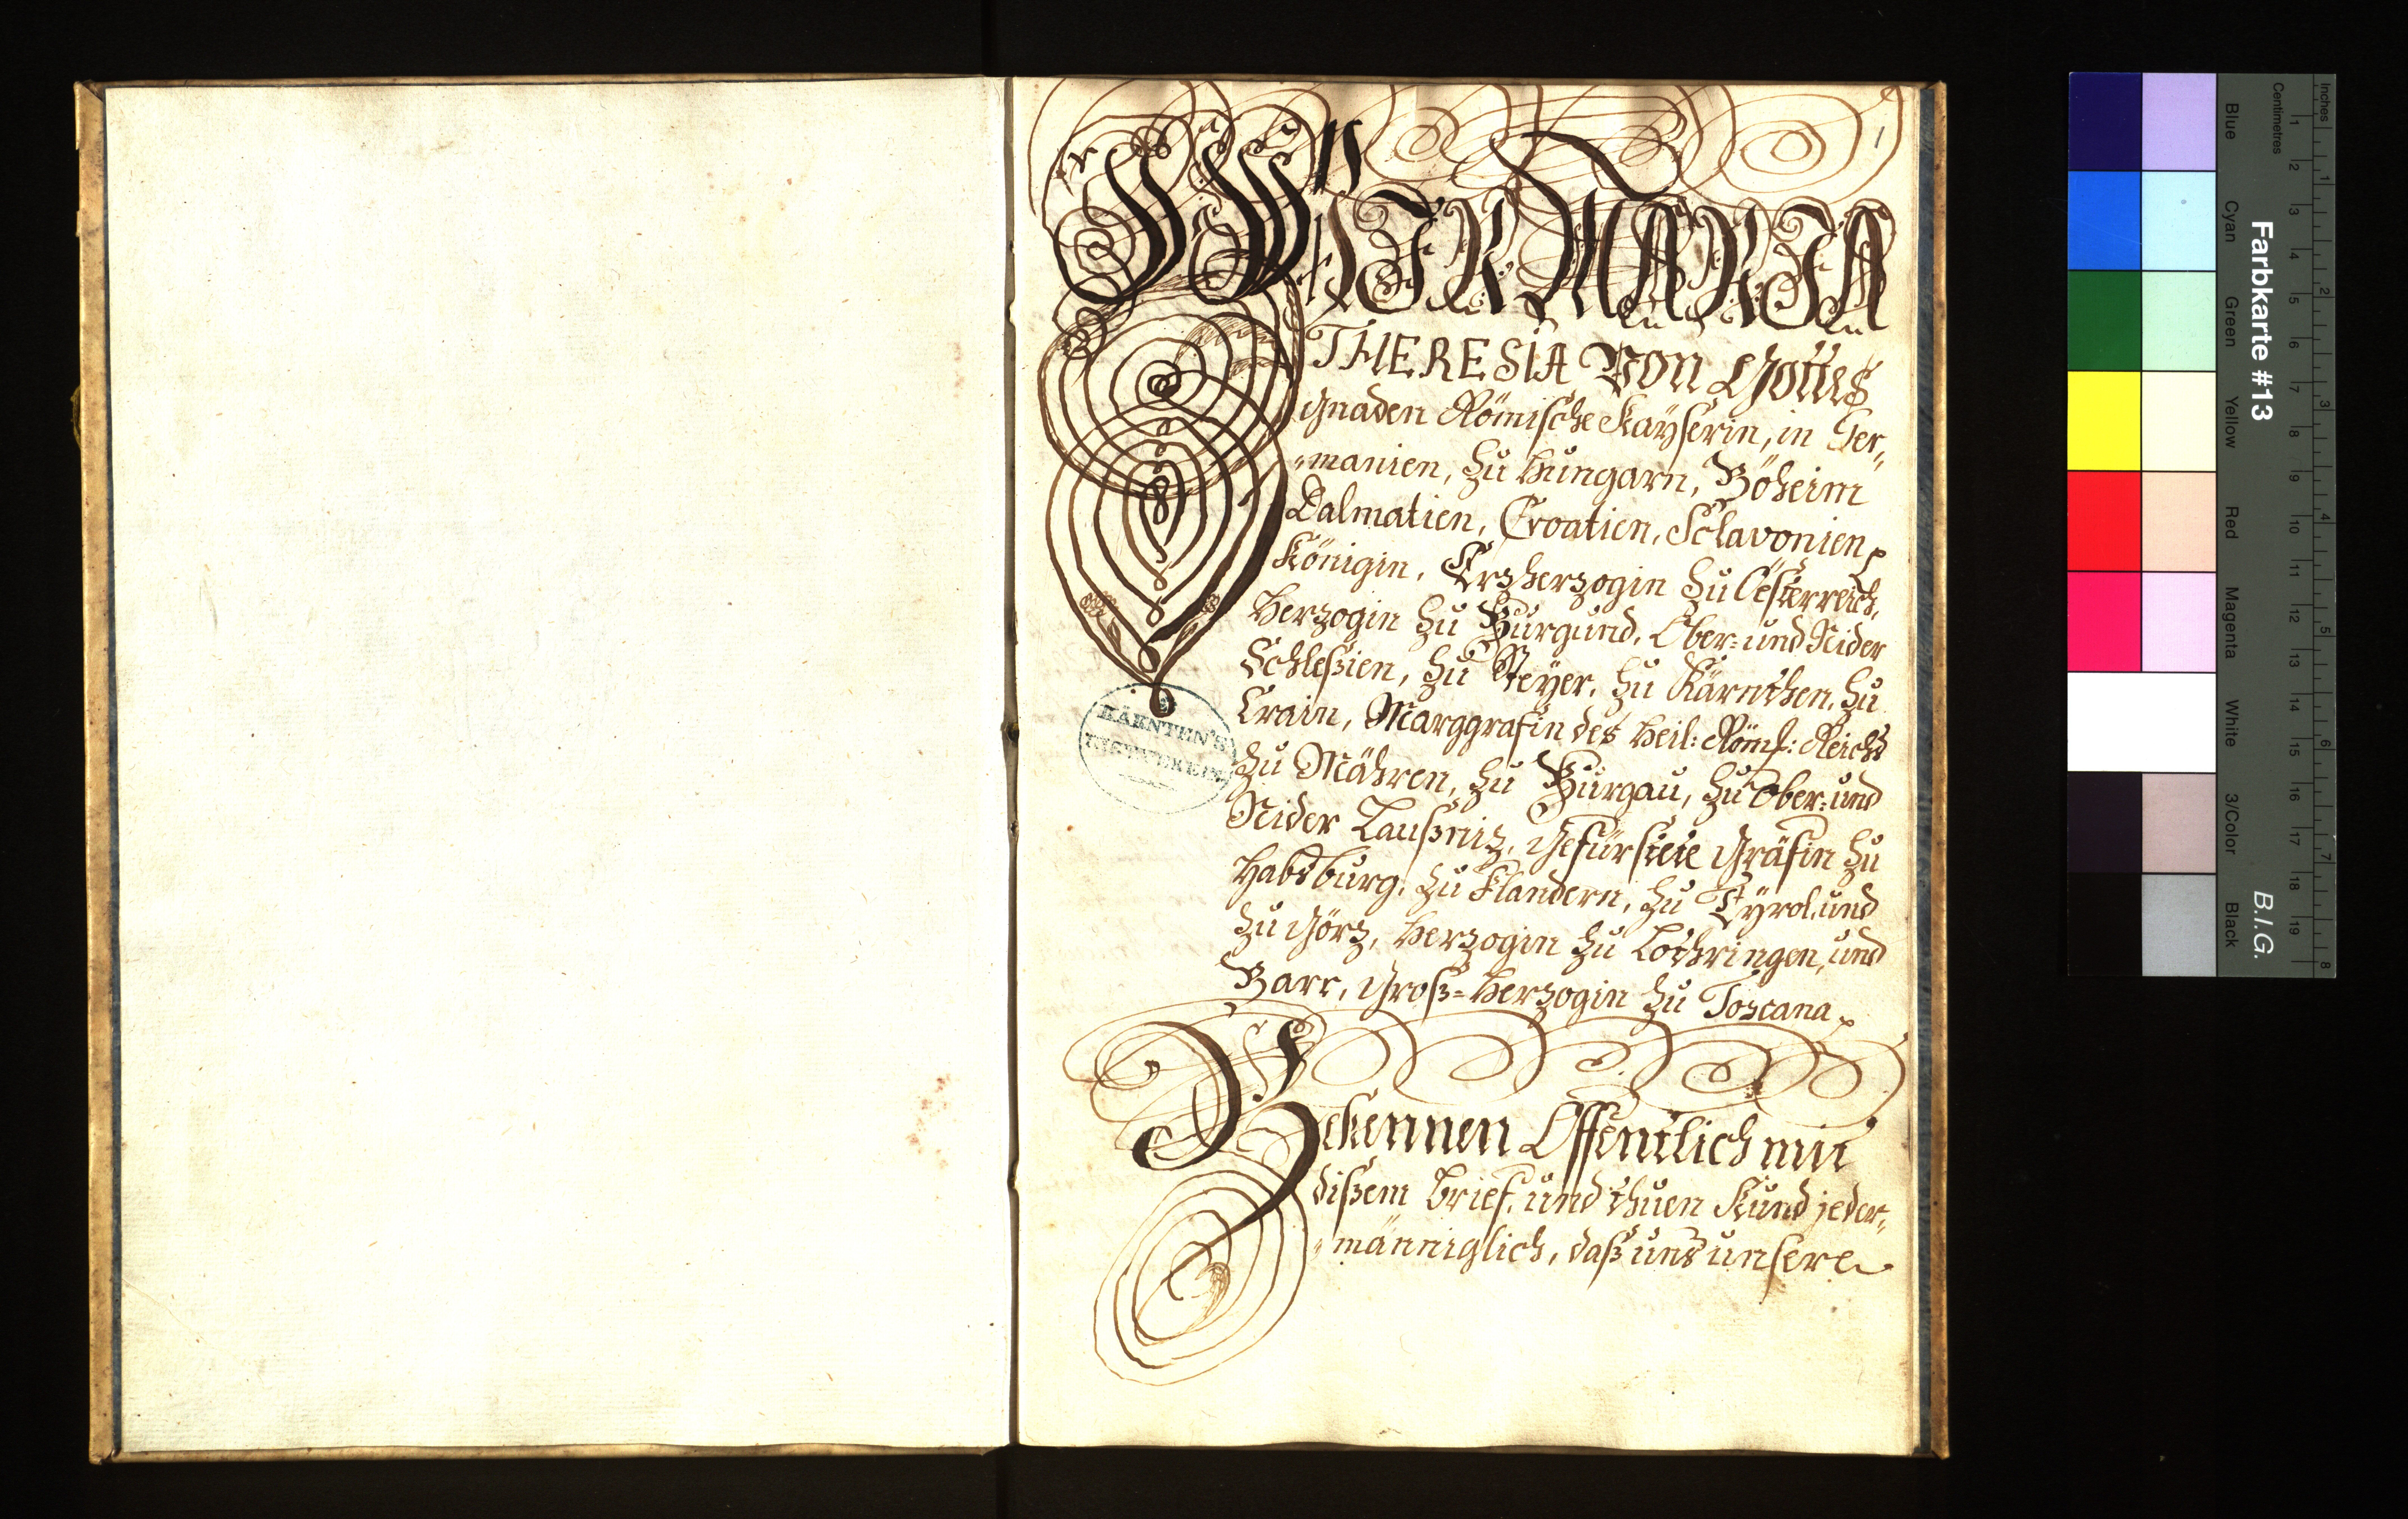 1
WIR MARIA
THERESIA Von Gottes
gnaden Römische Kayserin, in Ger„
„manien, zu Hungarn, Böheim
Dalmatien, Croatien, Sclavonien
Königin, Erzherzogin zu Oesterreich,
Herzogin zu Burgund, Ober= und Nider
Schleßien, zu Steyer, zu Kärnthen, zu
Crain, Marggrafin des Heil: Röms: Reichs
zu Mähren, zu Burgau, zu Ober= und
Nider Laußniz, Gefürstete Gräfin zu
Habsburg, zu Flandern, zu Tyrol, und
zu Görz, Herzogin zu Lothringen, und
Barr, Groß=Herzogin zu Toscana
Bekennen Offentlich mit
dißem brief, und thuen Kund jeder„
„männiglich, daß uns unsere
KÄRNTEN'S
Farbkarte #13
B.I.G.
Inches
1 2 3 4 5 6 7 8
Centimetres
1 2 3 4 5 6 7 8 9 10 11 12 13 14 15 16 17 18 19
Blue
Cyan
Green
Yellow
Red
Magenta
White
3/Color
Black